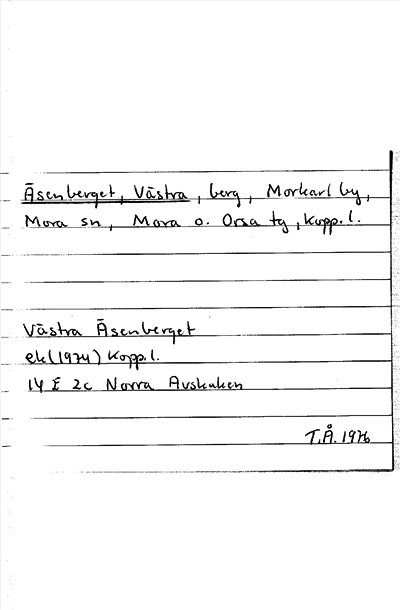 Åsenberget, Västra, berg, Morkarl by,
Mora sn, Mora o. Orsa tg, Kopp. l.
Västra Åsenberget
ek (1974) Kopp. l.
14 E 2c Norra Avskaken
T.Å. 1976